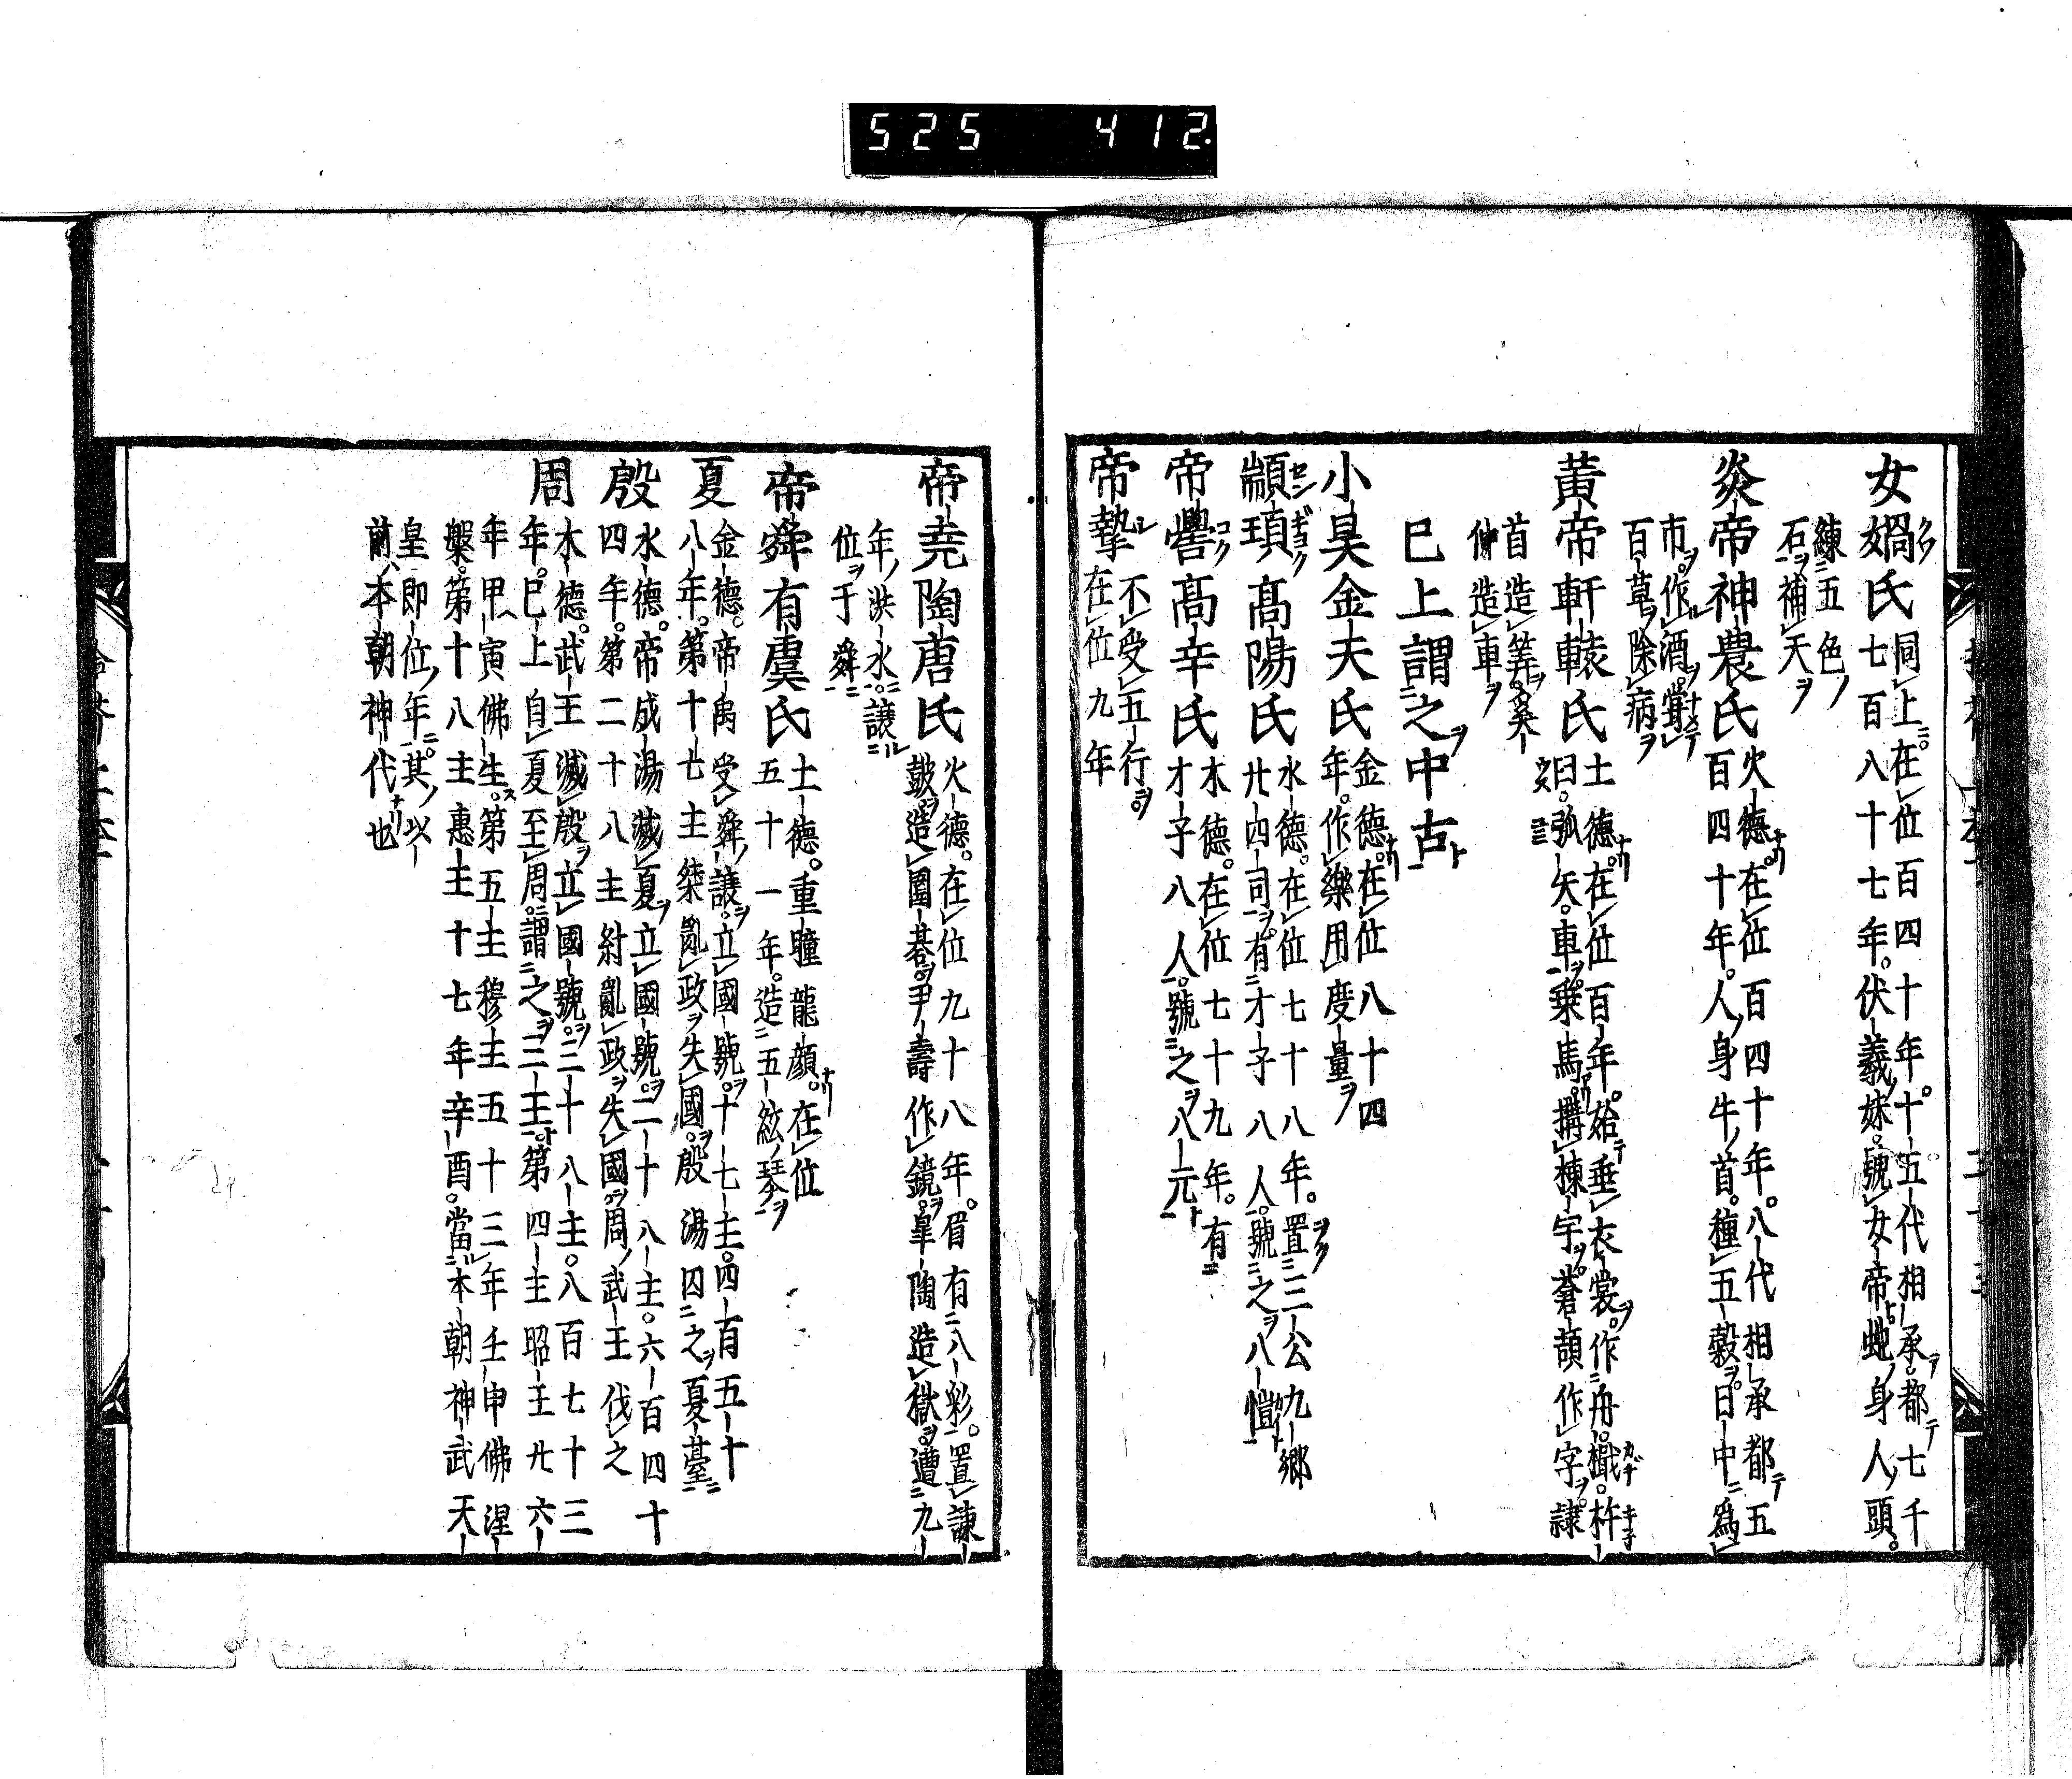 525 412.
女媧氏
同上在位百四十年十五代相承都七千
七百八十七年伏羲妹號女帝蛇身人頭
練五色
石補天
炎帝神農氏
火德在位百四十年八代相承都五
百四十年人身牛首種五穀日中爲
市作酒嘗
百草除病
黃帝軒轅氏
土德在位百年始垂衣裳作舟檝杵
臼弧矢車乗馬搆棟宇蒼頡作字隷
首造筭奚
仲造車
巳上謂之中古
小昊金天氏
金德在位八十四
年作樂用度量
顓頊高陽氏
水德在位七十八年置三公九卿
廿四司有才子八人號之八愷
帝嚳高辛氏
木德在位七十九年有
才子八人號之八元
帝摯
不受五行
在位九年
帝堯陶唐氏
火德在位九十八年眉有八彩置諫
鼓造圍碁尹壽作鏡皐陶造獄遭九
年洪水譲
位于舜
帝舜有虞氏
土德重瞳龍顔在位
五十一年造五絃琴
夏
金德帝禹受舜譲立國號十七主四百五十
八年第十七主桀亂政失國殷湯囚之夏臺
殷
水德帝成湯滅夏立國號二十八主六百四十
四年第二十八主紂亂政失國周武王伐之
周
木德武王滅殷立國號三十八主八百七十三
年巳上自夏至周謂之三王第四主昭王廿六
年甲寅佛生第五主穆王五十三年壬申佛涅
槃第十八主惠王十七年辛酉當本朝神武天
皇即位年其以
前本朝神代也